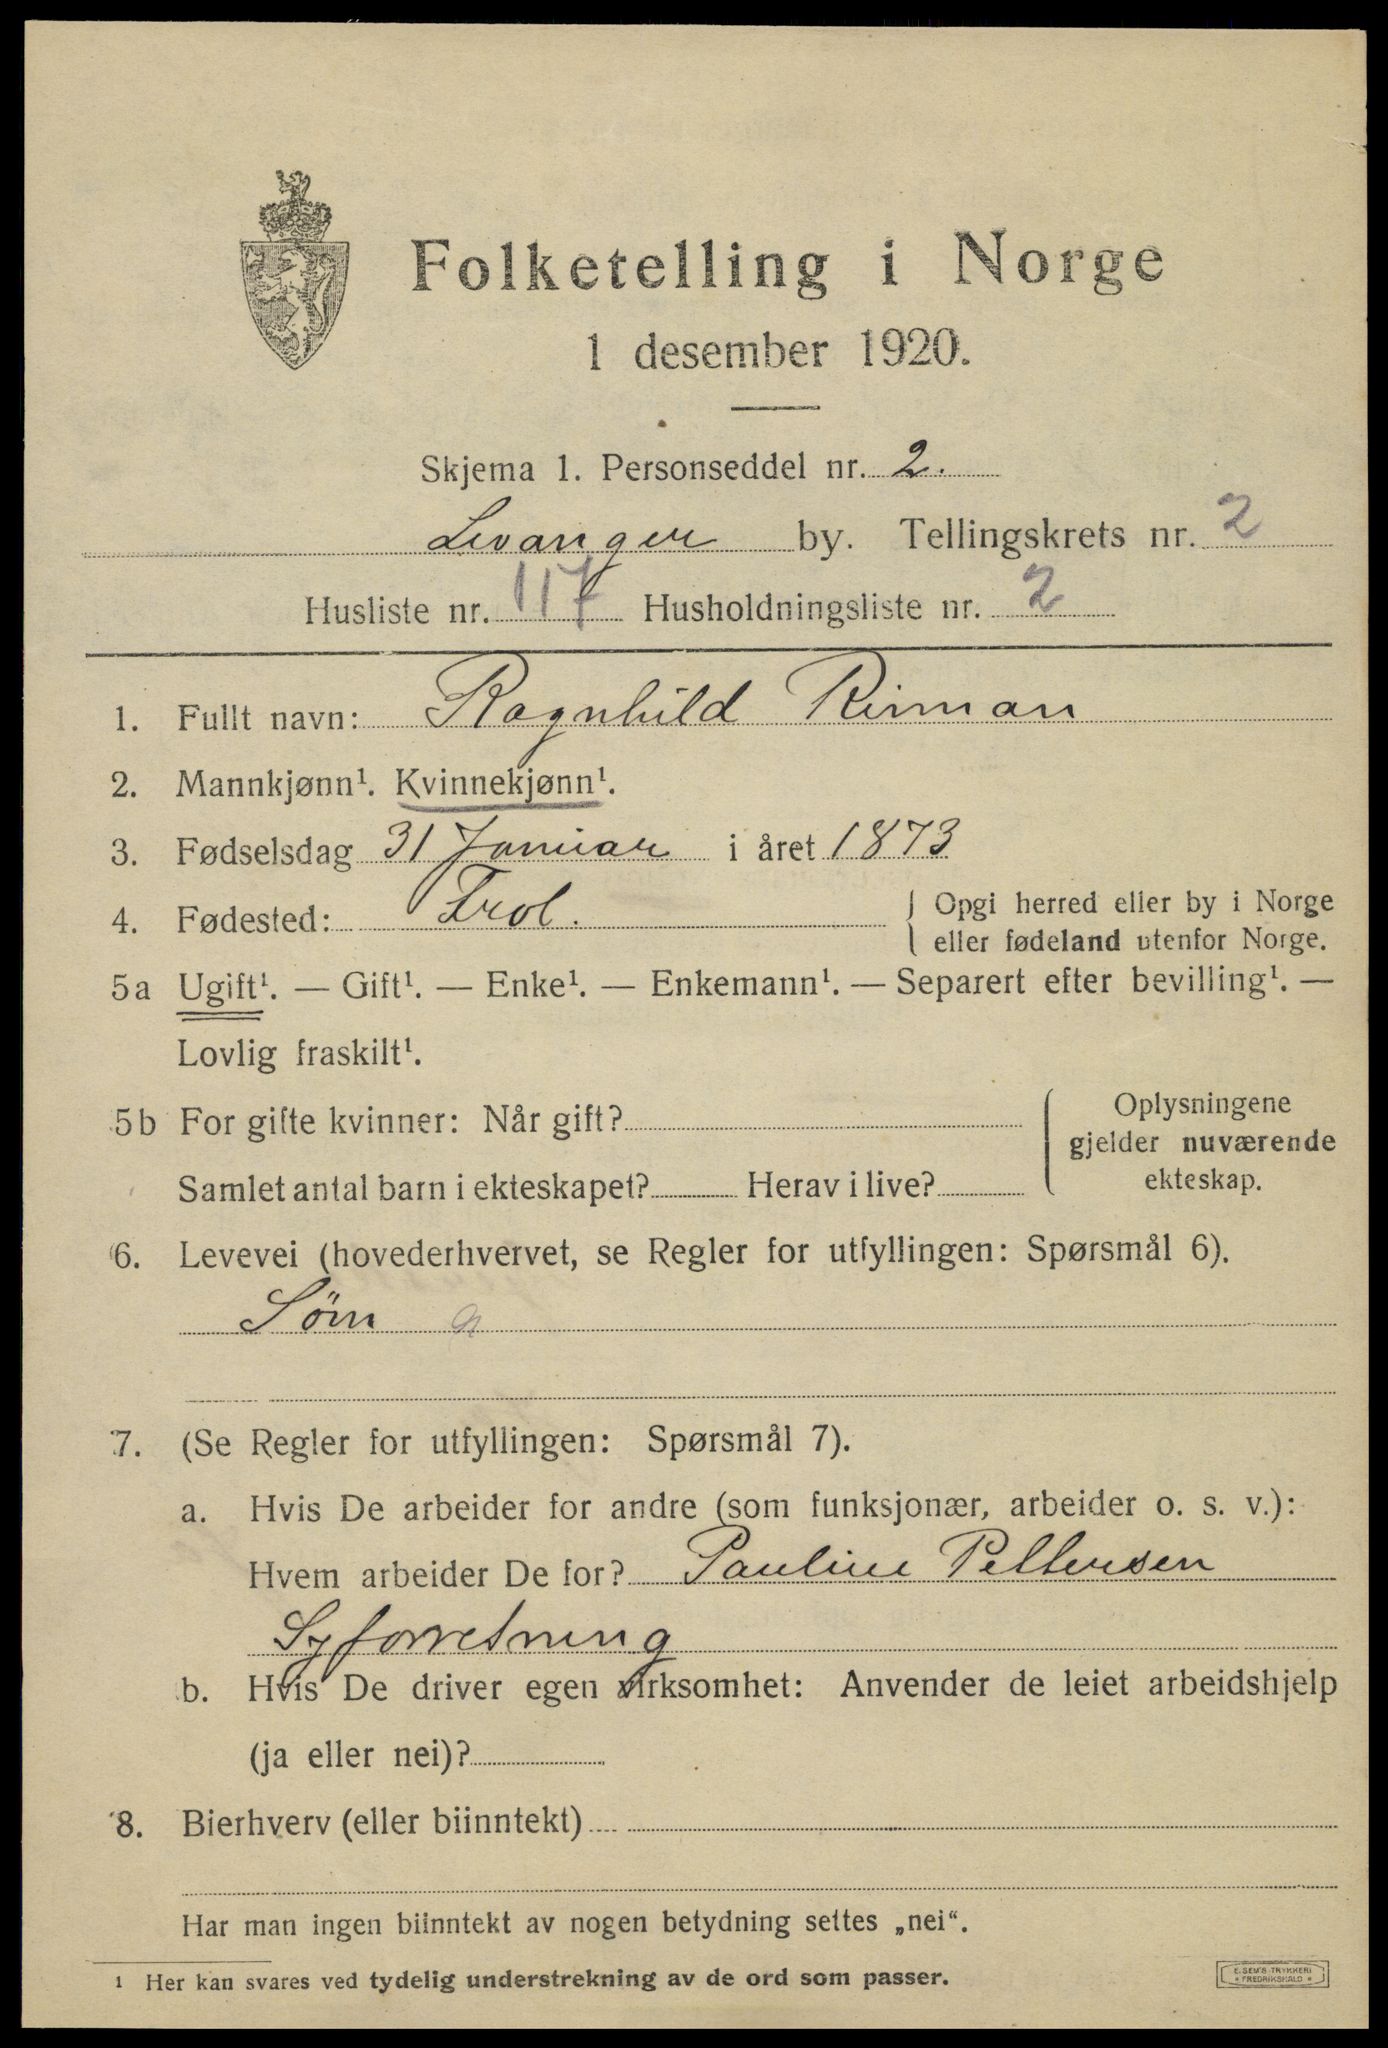 Folketelling i Norge
1 desember 1920.
Skjema 1. Personseddel nr. 2.
Levanger by. Tellingskrets nr. 2
Husliste nr. 117 Husholdningsliste nr. 2
1. Fullt navn: Ragnhild Rinnan
2. Mannkjønn¹. Kvinnekjønn¹.
3. Fødselsdag 31 Januar i året 1873
4. Fødested: Frol. { Opgi herred eller by i Norge
eller fødeland utenfor Norge.
5a Ugift¹. — Gift¹. — Enke¹. — Enkemann¹. — Separert efter bevilling¹. —
Lovlig fraskilt¹.
5b For gifte kvinner: Når gift?
Samlet antal barn i ekteskapet? Herav i live?
{ Oplysningene
gjelder nuværende
ekteskap.
6. Levevei (hovederhvervet, se Regler for utfyllingen: Spørsmål 6).
Søm
7. (Se Regler for utfyllingen: Spørsmål 7).
a. Hvis De arbeider for andre (som funksjonær, arbeider o. s. v.):
Hvem arbeider De for? Pauline Pettersen
Syforretning
b. Hvis De driver egen virksomhet: Anvender de leiet arbeidshjelp
(ja eller nei)?
8. Bierhverv (eller biinntekt)
Har man ingen biinntekt av nogen betydning settes „nei“.
¹ Her kan svares ved tydelig understrekning av de ord som passer.
E. SEM'S TRYKKERI
* FREDRIKSHALD *